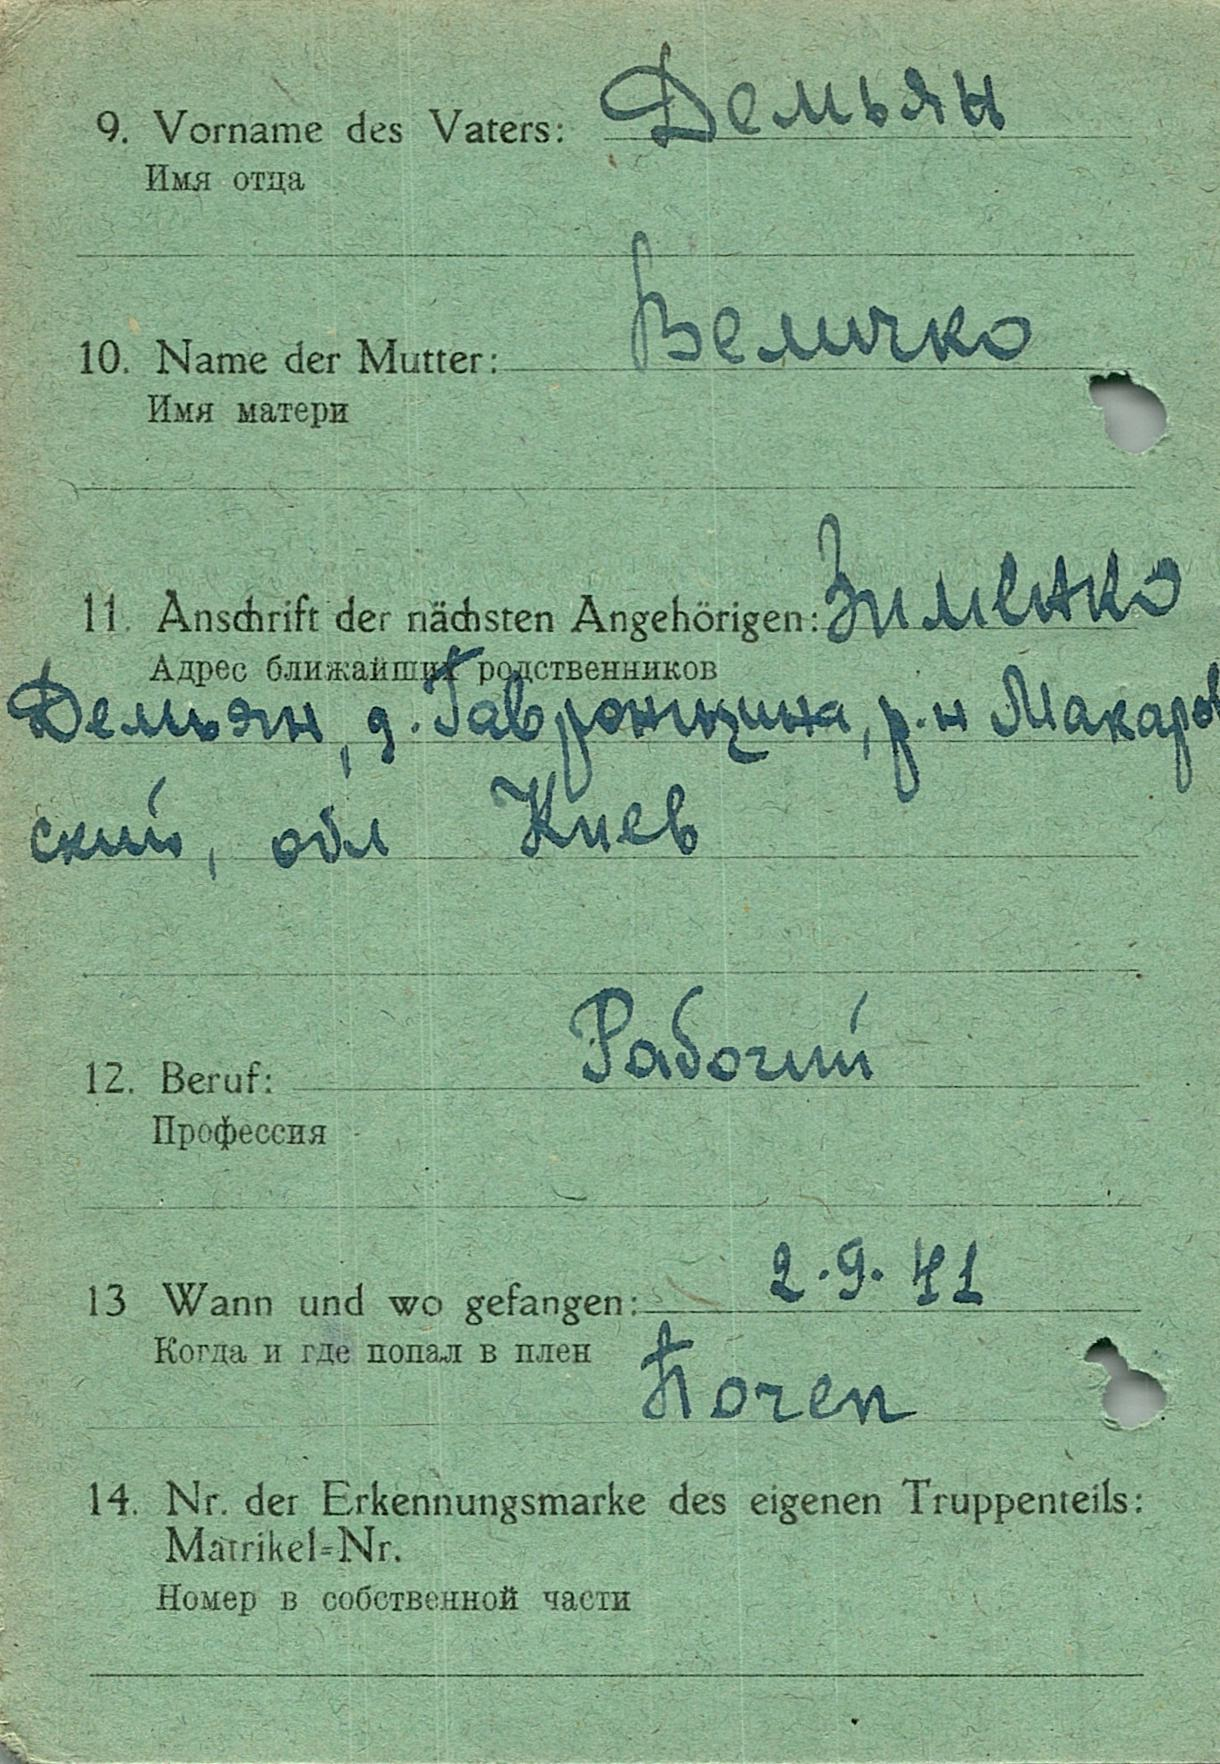 9. Vorname des Vaters: Демьян
Имя отца
10. Name der Mutter: Величко
Имя матери
11. Anschrift der nächsten Angehörigen: Зименко
Адрес ближайших родственников
Демьян, д. Гавронщина, р.н Макаров
ский, обл Киев
12. Beruf: Рабочий
Профессия
13 Wann und wo gefangen: 2.9.41
Когда и где попал в плен Почеп
14. Nr. der Erkennungsmarke des eigenen Truppenteils:
Matrikel=Nr.
Номер в собственной части